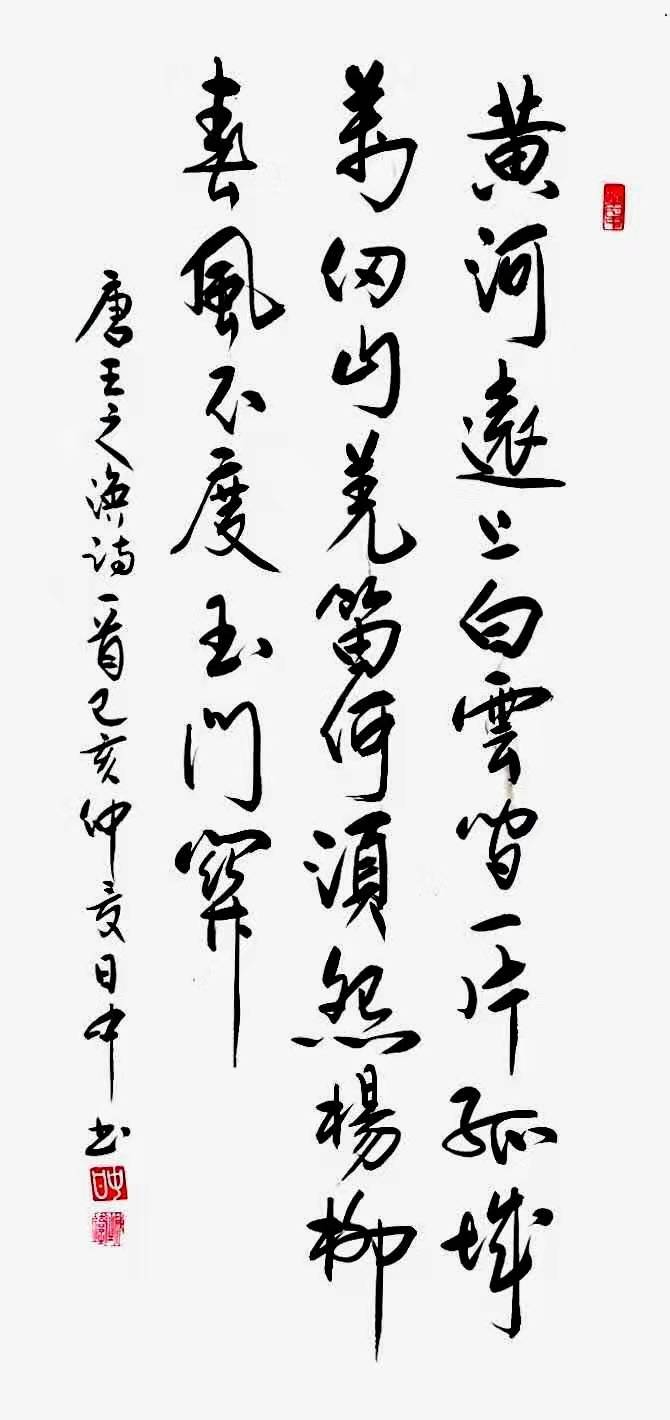 黄河遠上白雲間一片孤城
萬仞山羌笛何須怨楊柳
春風不度玉門關
唐王之渙詩一首己亥仲夏日中書